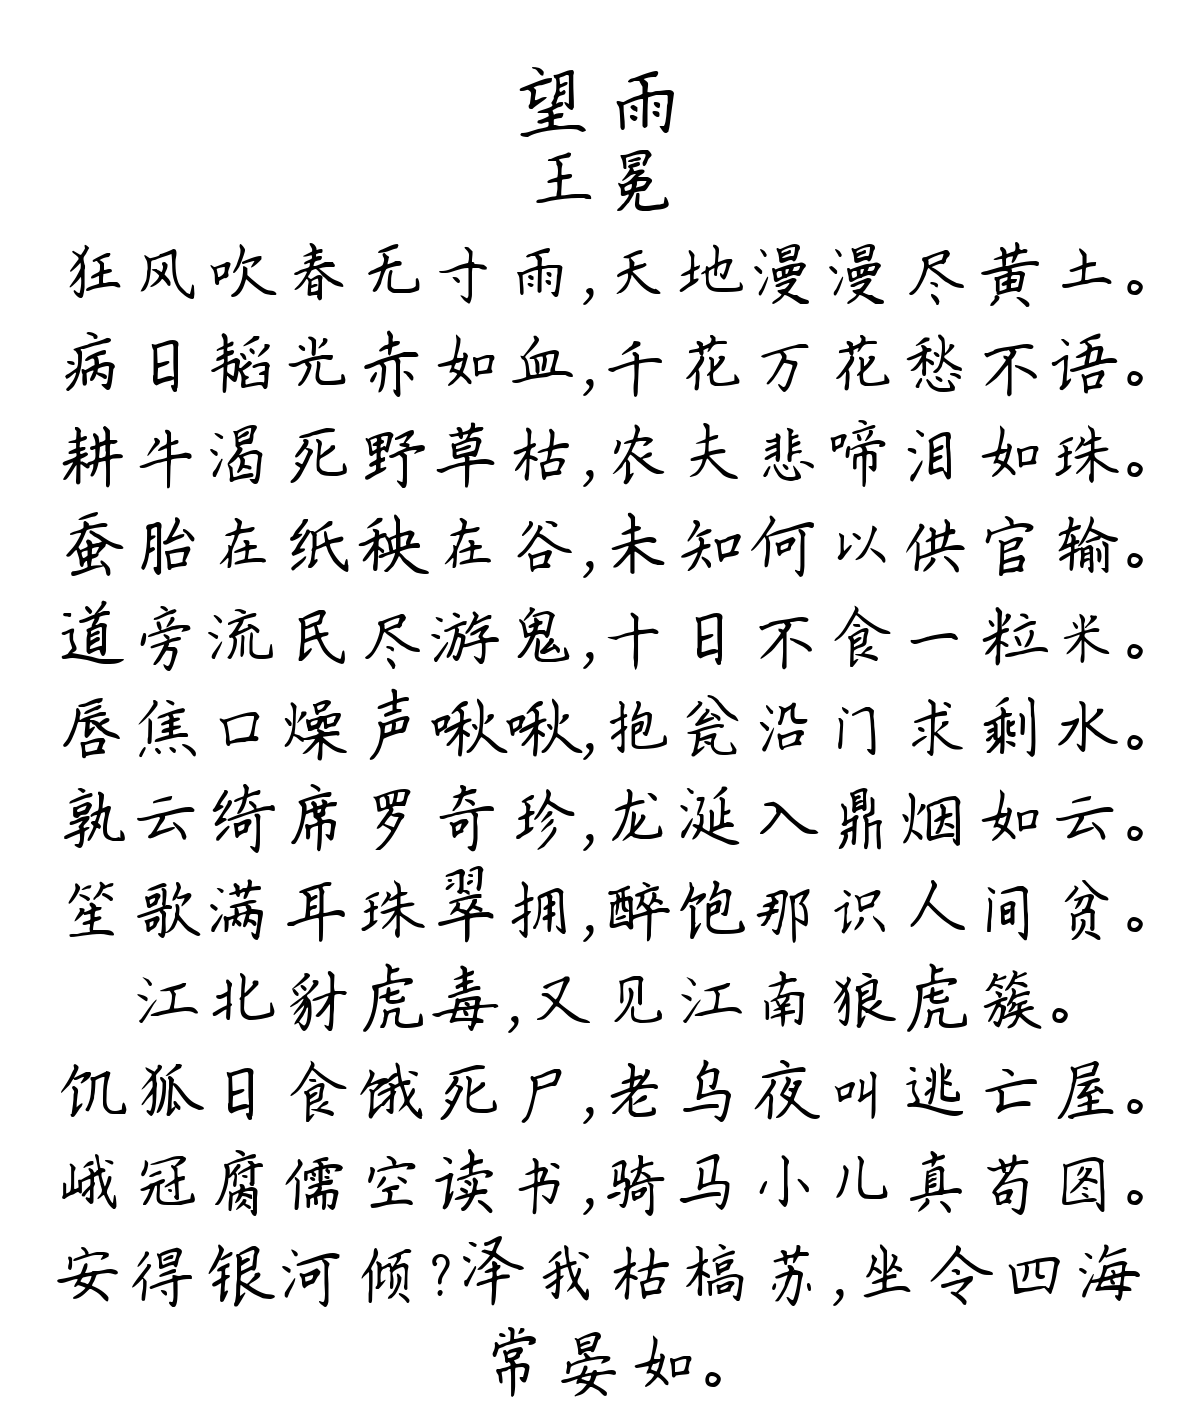 望雨
王冕
狂风吹春无寸雨,天地漫漫尽黄土。
病日韬光赤如血,千花万花愁不语。
耕牛渴死野草枯,农夫悲啼泪如珠。
蚕胎在纸秧在谷,未知何以供官输。
道旁流民尽游鬼,十日不食一粒米。
唇焦口燥声啾啾,抱瓮沿门求剩水。
孰云绮席罗奇珍,龙涎入鼎烟如云。
笙歌满耳珠翠拥,醉饱那识人间贫。
江北豺虎毒,又见江南狼虎簇。
饥狐日食饿死尸,老乌夜叫逃亡屋。
峨冠腐儒空读书,骑马小儿真苟图。
安得银河倾?泽我枯槁苏,坐令四海
常晏如。